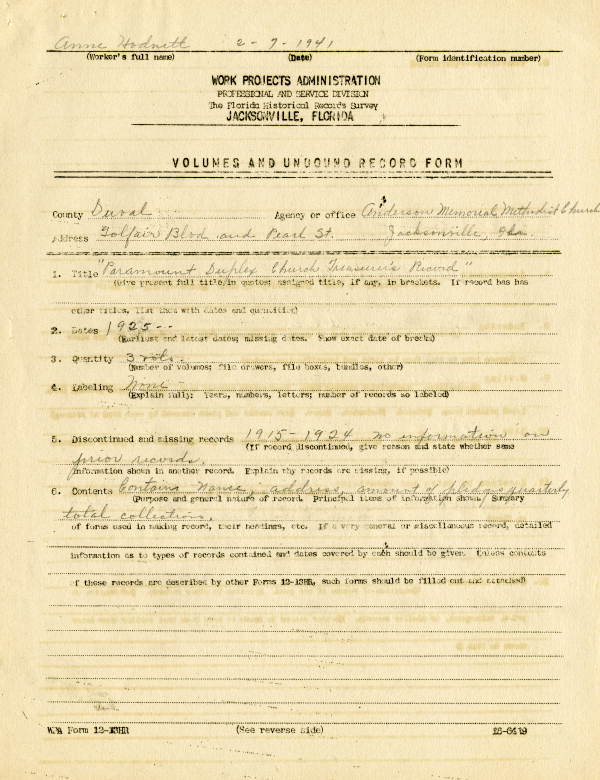 Anne Hodnett 2-7-1941
(Worker's full name) (Date) (Form identification number)
WORK PROJECTS ADMINISTRATION
PROFESSIONAL AND SERVICE DIVISION
The Florida Historical Records Survey
JACKSONVILLE, FLORIDA
VOLUMES AND UNBOUND RECORD FORM
County Duval Agency or office Anderson Memorial Methodist Church
Address Golfair Blvd and Pearl St. Jacksonville, Fla.
1. Title "Paramount Duplex Church Treasurer's Record"
(Give present full title, in quotes; assigned title, if any, in brackets. If record has has
other titles, list them with dates and quantities)
2. Dates 1925--
(Earliest and latest dates; missing dates. Show exact date of breaks)
3. Quantity 3 vols.
(Number of volumes; file drawers, file boxes, bundles, other)
4. Labeling None
(Explain fully: Years, numbers, letters; number of records so labeled)
5. Discontinued and missing records 1915-1924 no information on
(If record discontinued, give reason and state whether same
prior records.
information shown in another record. Explain thy records are missing, if possible)
6. Contents Contains name, address, amount of pledge, quarterly
(Purpose and general nature of record. Principal items of information shown/ Summary
total collection.
of forms used in making record, their headings, etc. If a very general or miscellaneous record, detailed
information as to types of records contained and dates covered by each should be given. Unless contents
of these records are described by other Forms 12-13HR, such forms should be filled out and attached)
WPA Form 12-13HR (See reverse side) 28-6419